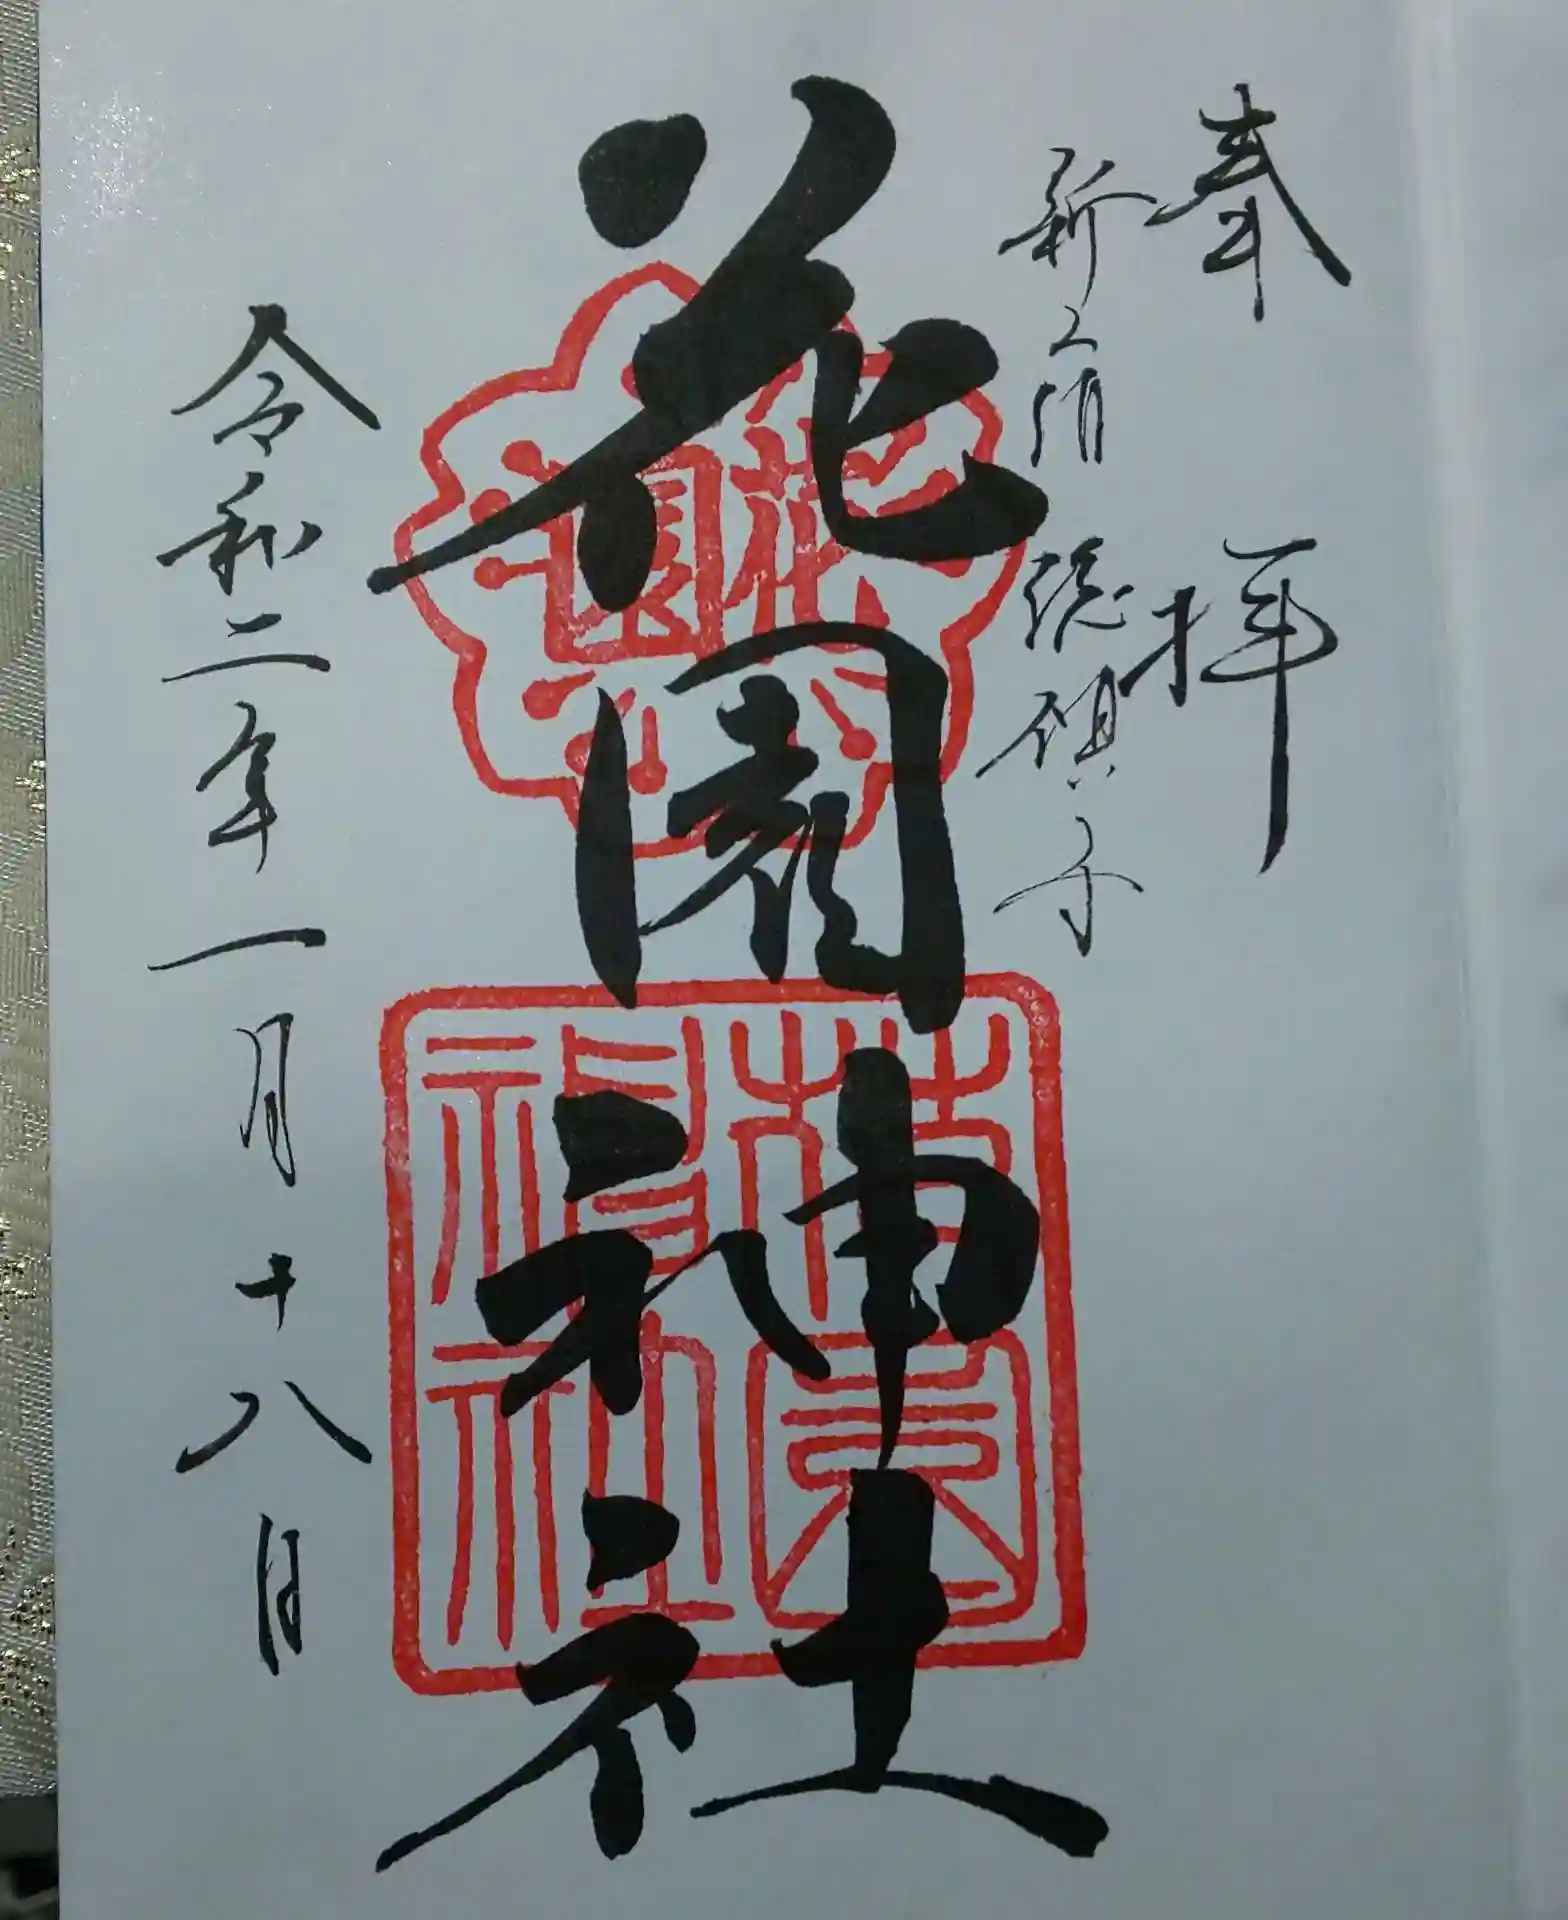 奉拝
新宿総鎮守
花園
花園神社
花園神社
令和二年一月十八日